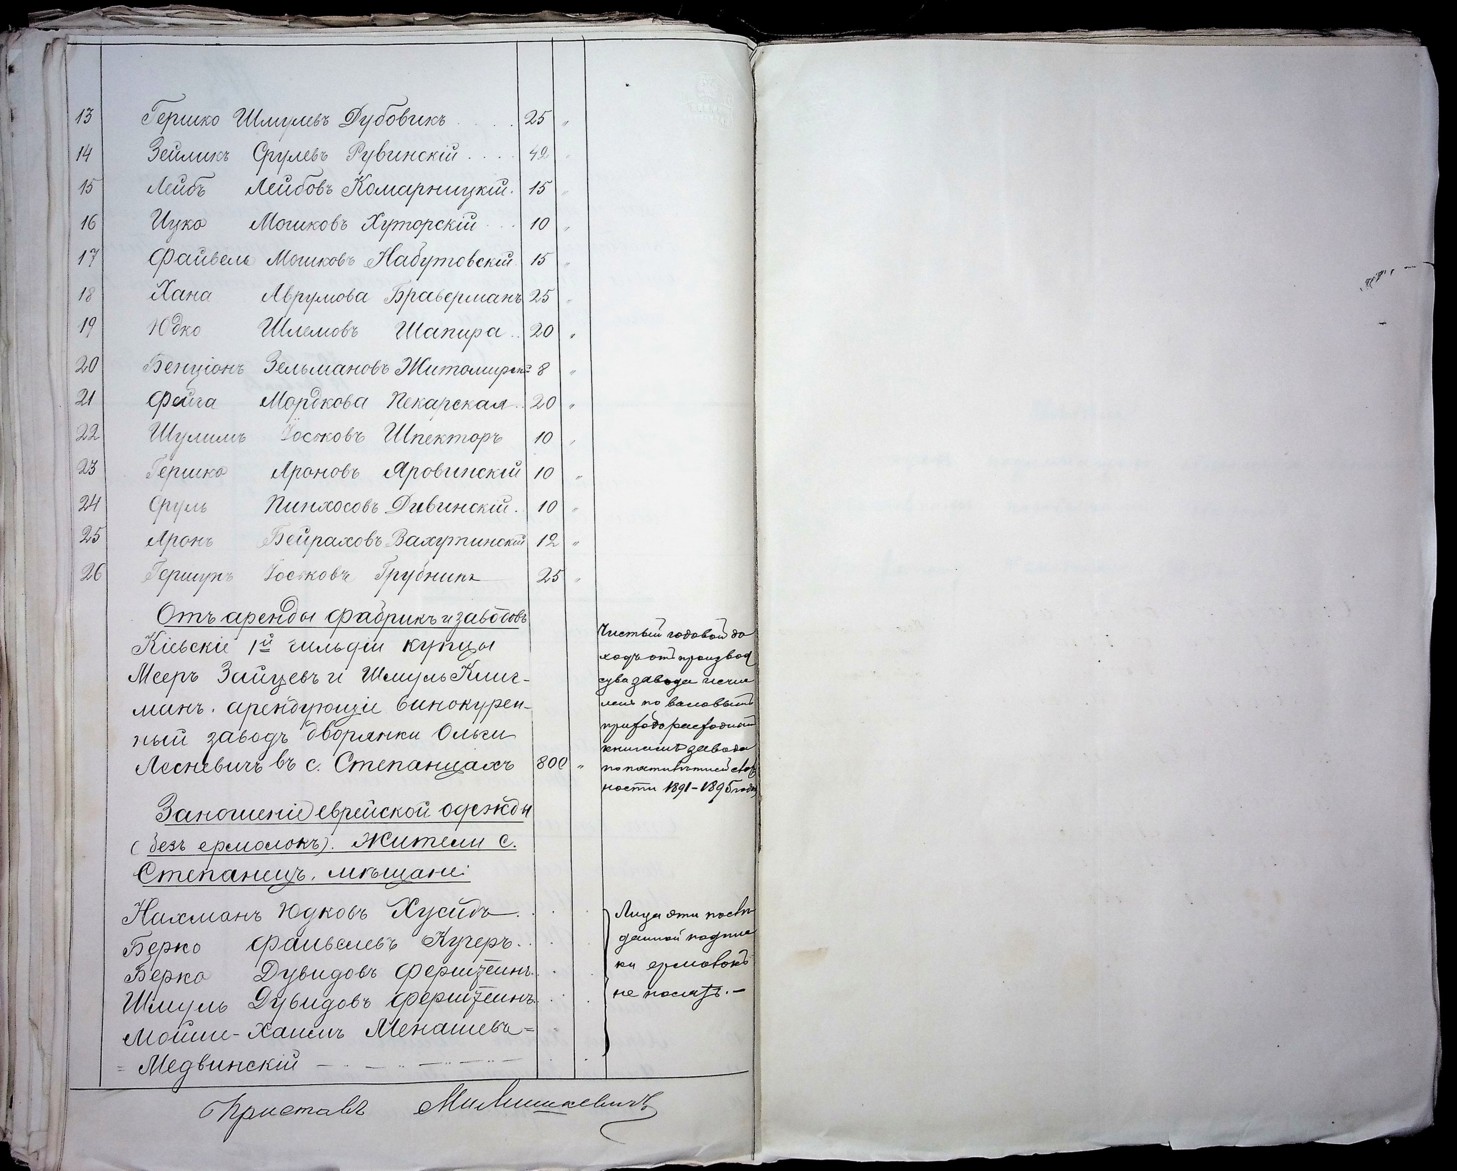 13 Гершко Шмулевъ Дубовикъ 25 „
14 Зейликъ Срулевъ Рувинскій 42 „
15 Лейбъ Лейбовъ Комарницкій 15 „
16 Ицко Мошковъ Хуторскій 10 „
17 Файвель Мошковъ Набутовскій 15 „
18 Хана Аврумова Браверманъ 25 „
19 Юдко Шлемовъ Шапира 20 „
20 Бенціонъ Зельмановъ Житомирскій 8 „
21 Фейга Мордкова Пекарская 20 „
22 Шулимъ Іоськовъ Шпекторъ 10 „
23 Гершко Ароновъ Яровинскій 10 „
24 Сруль Пинхосовъ Дивинскій 10 „
25 Аронъ Бейраховъ Вахутинскій 12 „
26 Гершунъ Іоськовъ Трубникъ 25 „
Отъ аренды фабрикъ и заводовъ
Кіевскіе 1й гильдіи купцы
Мееръ Зайцевъ и Шмуль Клиг-
манъ, арендующіе винокурен-
ный заводъ дворянки Ольги
Лесневичъ въ с. Степанцахъ 800 „
Чистый годовой до
ходъ отъ производ
ства завода исчис
ленъ по валовымъ
приходорасходнымъ
книгамъ завода
по
ности 1891-1895 года
За ношеніе еврейской одежды
(безъ ермолокъ). Жители с.
Степанецъ, мѣщане:
Нахманъ Юдковъ Хусидъ
Берко Файвелевъ Кучеръ
Берко Дувидовъ Ферштеинъ
Шмуль Дувидовъ Ферштеинъ
Мойше-Хаимъ Менашевъ=
=Медвинскій
Лица эти посвѣ
данной подпис
ки ермолокъ
не носятъ.—
Приставъ